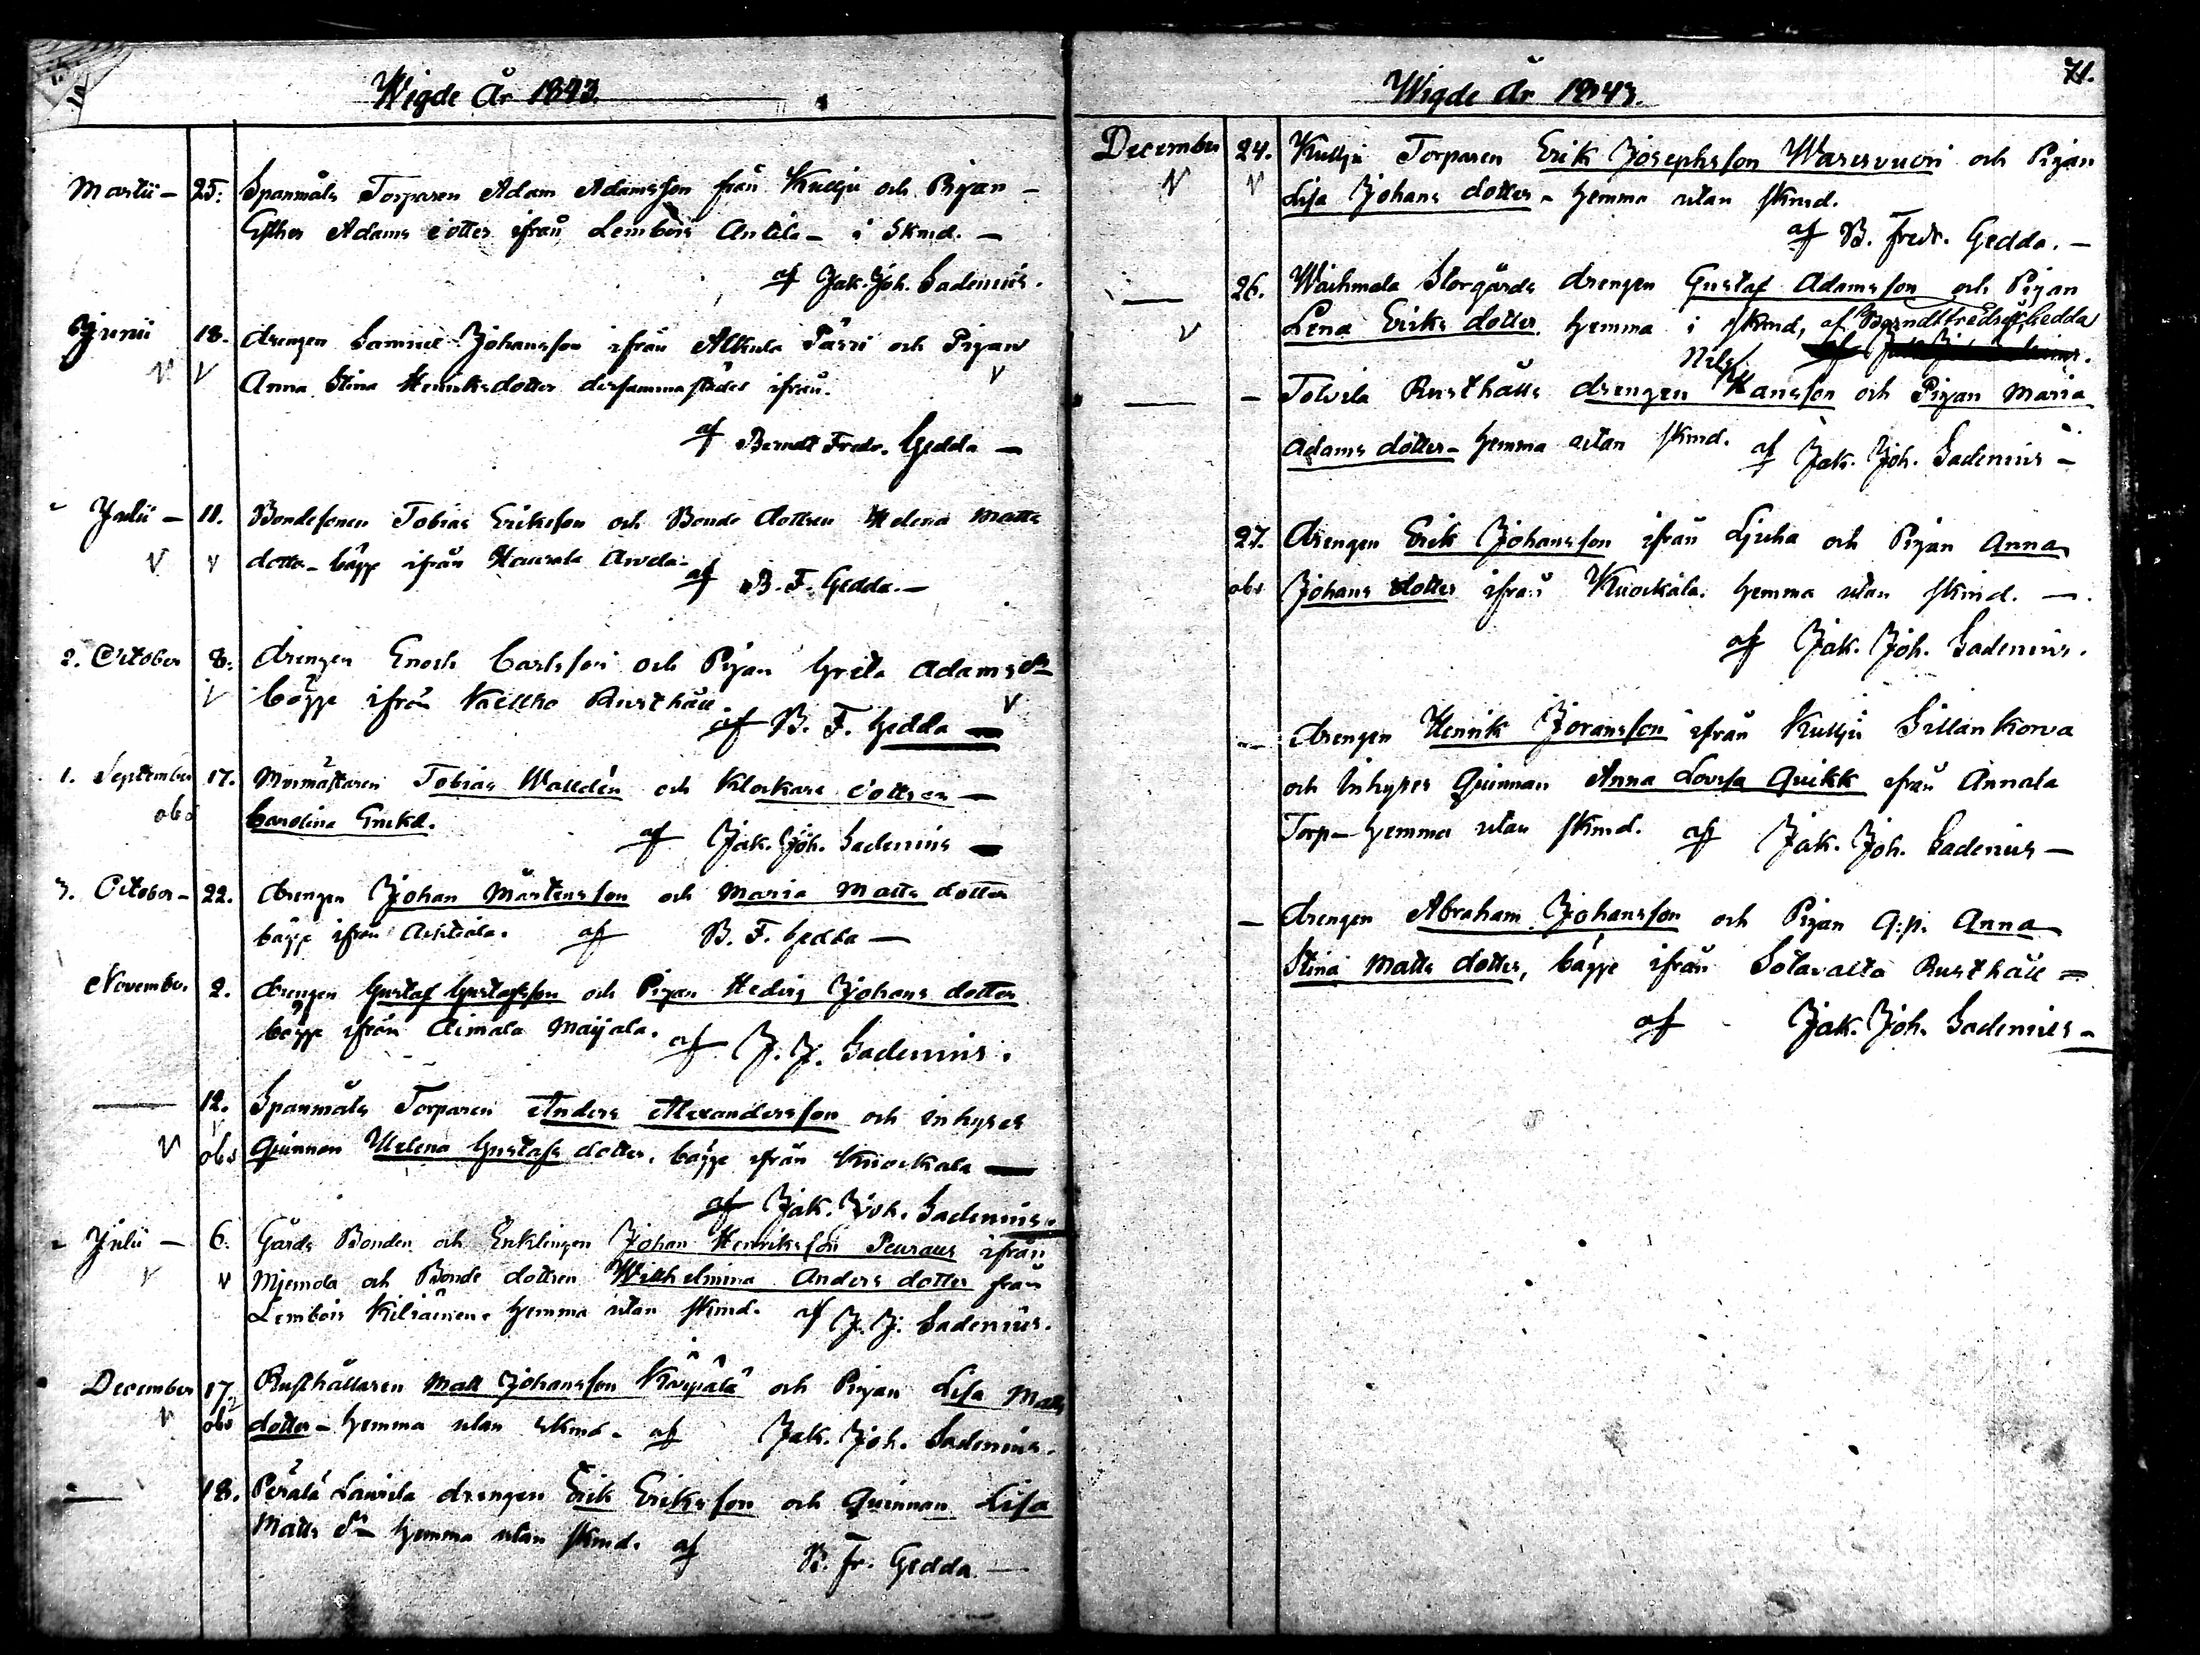 Wigde År 1843.
Martii – 25. Spanmåls Torparen Adam Adamsson från Kullju och Pigan –
Esther Adams dotter ifrån Lembois Antila – i Skmd. –
af Jak. Joh. Sadenius.
Junii 18. drengen Samuel Johansson ifrån Alkula Parri och Pigan
Anna Stina Henriksdotter dersammastädes ifrån.
af Berndt Fredr. Gedda –
Julii – 11. Bondesonen Tobias Eriksson och Bonde dottren Helena Matts
dotter – bägge ifrån Haurala
af B. F. Gedda. –
2. October 8. drengen Enoch Carlsson och Pigan Greta Adams dr
bägge ifrån Kellho Rusthåll
af B. F. Gedda –
1. September 17. Murmästaren Tobias Walldén och Klockare dottren –
obs Carolina
af Jak. Joh. Sadenius –
3. October – 22. drengen Johan Mårtensson och Maria Matts dotter
bägge ifrån af B. F. Gedda –
November 2. drengen Gustaf Gustafsson och Pigan Hedvig Johans dotter
bägge ifrån Aimala Maijala. af J. J. Sadenius.
— 12. Spanmåls Torparen Anders Alexandersson och inhyses
obs Quinnan Helena Gustafs dotter, bägge ifrån Knockala —
af Jak. Joh. Sadenius.
Julii – 6. Gårds Bonden och Enklingen Johan Henriksson Peuraus ifrån
Mjemola och Bonde dottren Wilhelmina Anders dotter från
Lembois Kiliäinen. hemma utan skmd. af J. J. Sadenius.
December 17. Rusthållaren Matt Johansson Käipälä och Pigan Lisa Matts
obs dotter – hemma utan Skmd – af Jak. Joh. Sadenius.
— 18. Perälä Laurila drengen Erik Eriksson och Quinnan Lisa
Matts dr hemma utan skmd. af B. Fr. Gedda. —
Wigde År 1843.
71.
December 24. Kullju Torparen Erik Josephsson Waresvuori och Pigan
Lisa Johans dotter – hemma utan skmd.
af B. Fredr. Gedda. –
— 26. Waihmala Storgårds drengen Gustaf Adamsson och Pigan
Lena Eriks dotter. hemma i skmd, af Berndt Fredrik Gedda
Nils
— – Tolvila Rusthålls drengen Hansson och Pigan Maria
Adams dotter – hemma utan skmd. af Jak. Joh. Sadenius –
27. drengen Erik Johansson ifrån Ljuha och Pigan Anna
obs Johans dotter ifrån Knockala. hemma utan skmd. —.
af Jak. Joh. Sadenius.
— drengen Henrik Joransson ifrån Kullju Sillankorva
och inhyses Quinnan Anna Lovisa Quikk ifrån Annala
Torp – hemma utan skmd. af Jak. Joh. Sadenius –
– drengen Abraham Johansson och Pigan q:p. Anna
Stina Matts dotter, bägge ifrån Sotavalta Rusthåll =
af Jak. Joh. Sadenius –